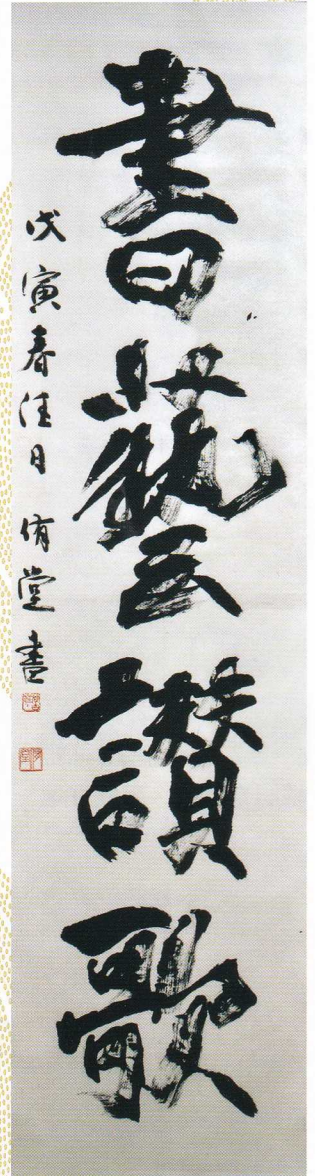 書藝讃歌
戊寅春佳日 侑堂書